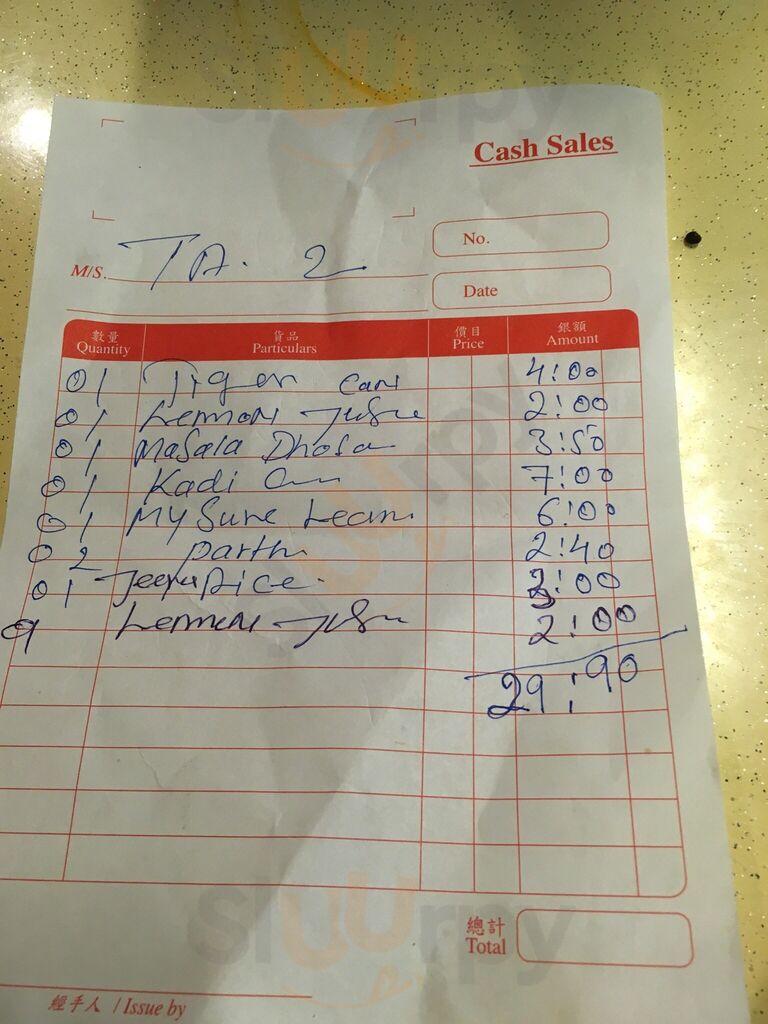 Cash Sales
No.
M/S. TA. 2
Date
數量 貨品 價目 銀額
Quantity Particulars Price Amount
01 Tiger Can 4:00
01 Lemon Jusu 2:00
01 Masala Dhosa 3:50
01 Kadi 7:00
01 MySure 6:00
02 2:40
01 Jeera Rice 3:00
Lemon Jusu 2:00
29:90
總計
Total
經手人 / Issue by
sluurpy